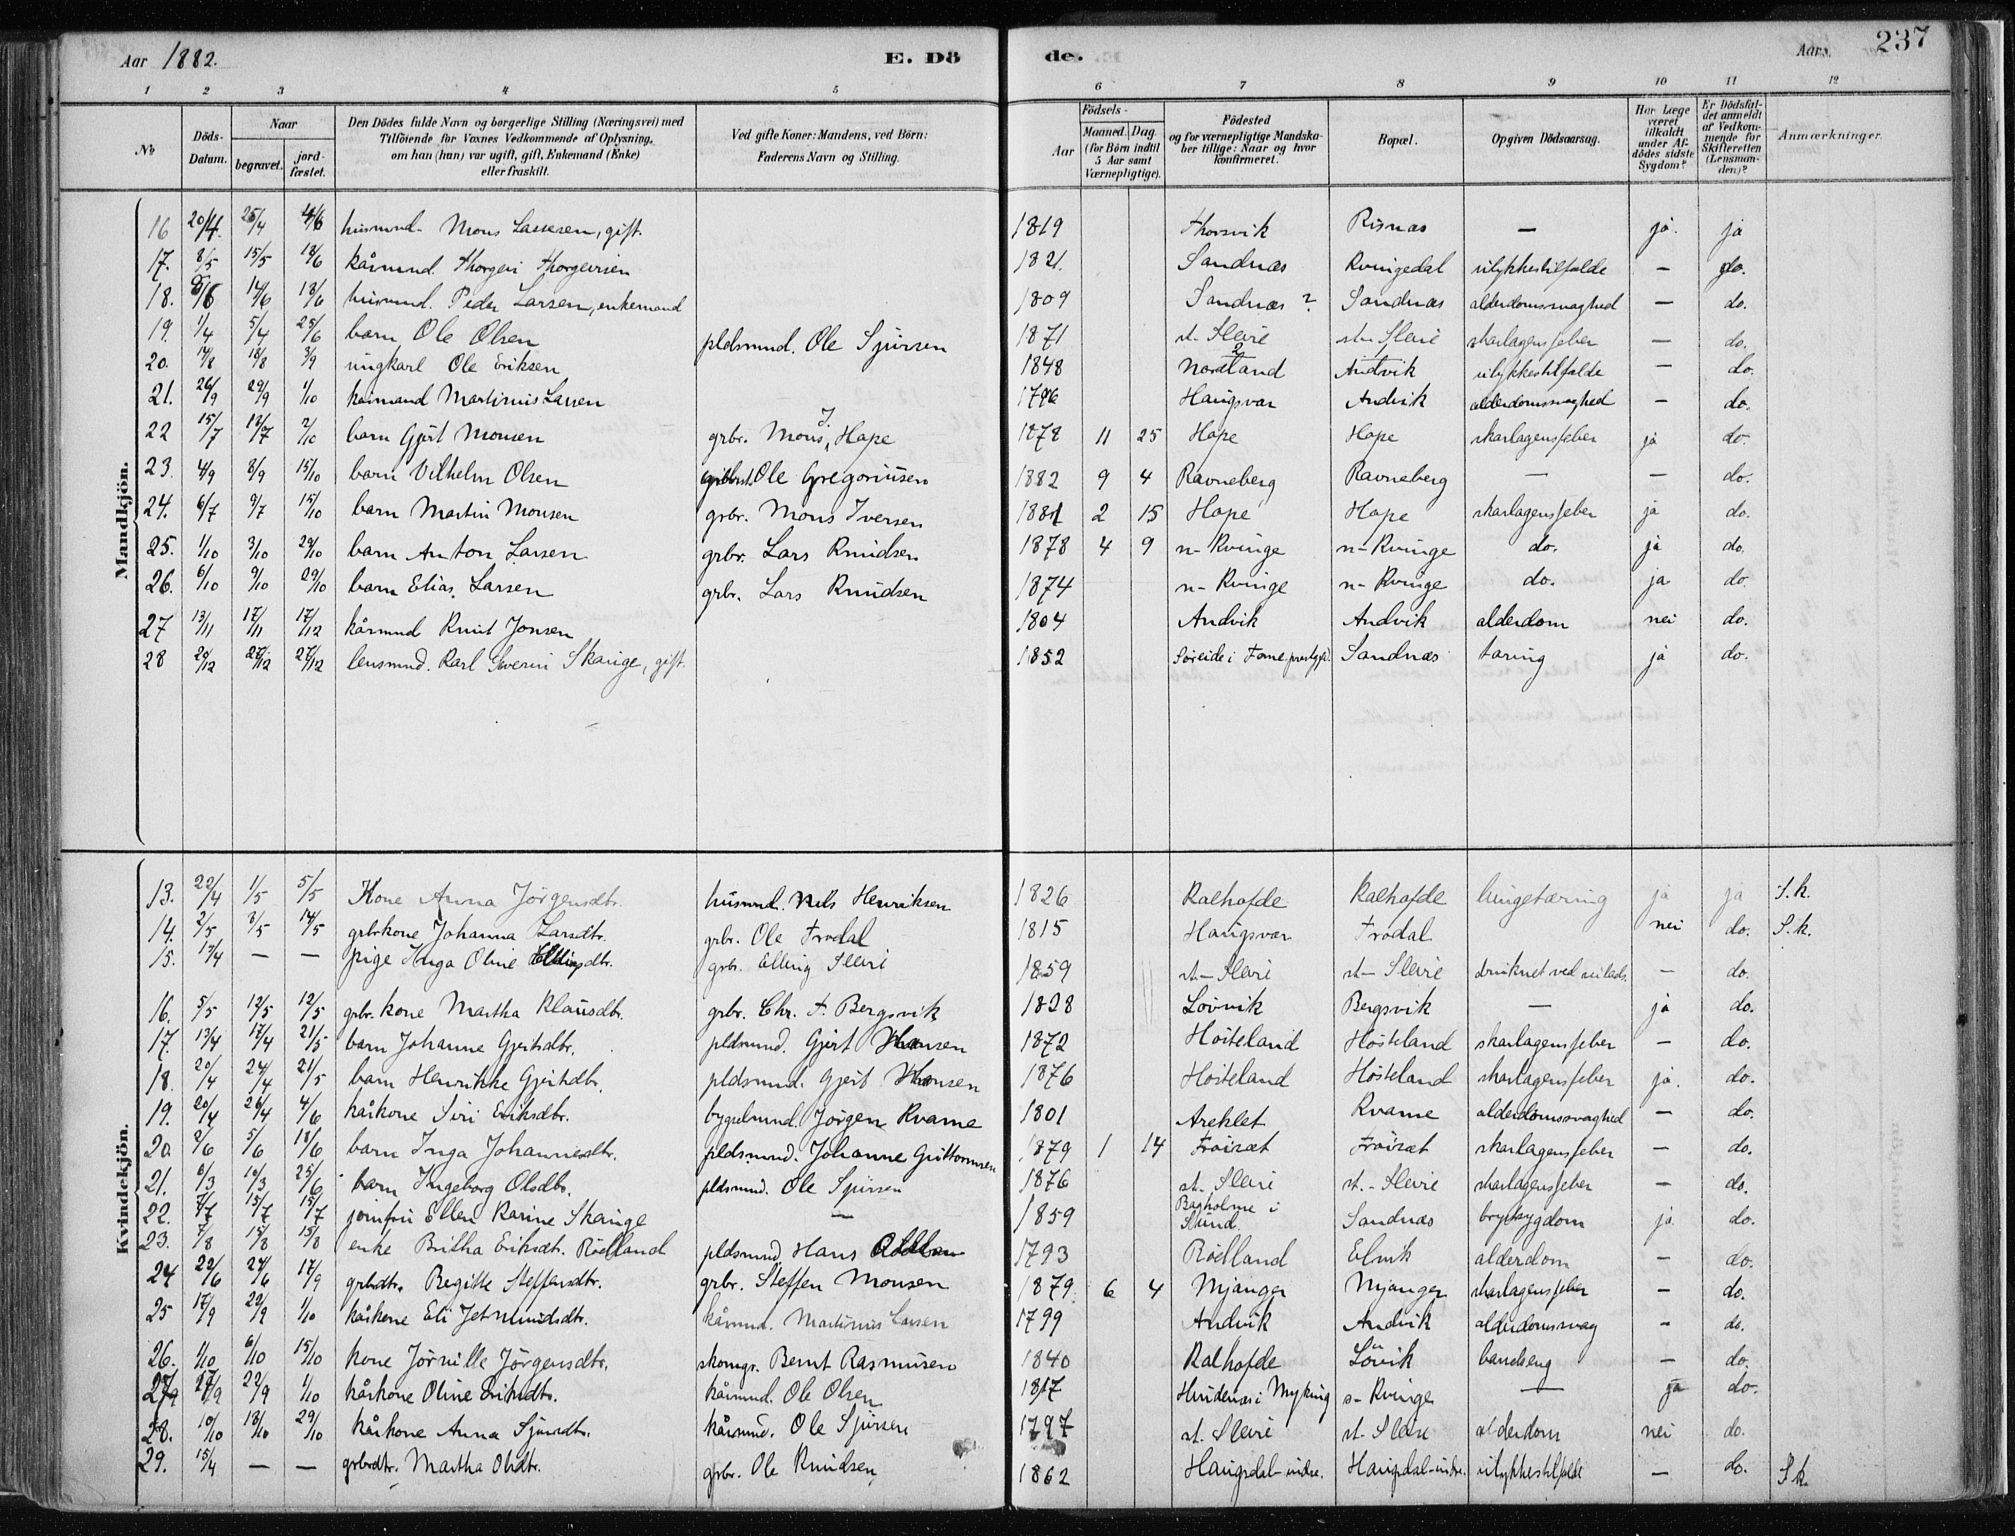 Aar 1882. E. Dö de. Aars. 237
1 2 3 4 5 6 7 8 9 10 11 12
No. Döds-Datum. Naar begravet. jord-fæstet. Den Dödes fulde Navn og borgerlige Stilling (Næringsvei) med Tilföiende for Voxnes Vedkommende af Oplysning, om han (hun) var ugift, gift, Enkemand (Enke) eller fraskilt. Ved gifte Koner: Mandens, ved Börn: Faderens Navn og Stilling. Födsels- Aar Maaned. Dag. (for Börn indtil 5 Aar samt Værnepligtige). Födested og for værnepligtige Mandskaber tillige: Naar og hvor konfirmeret. Bopæl. Opgiven Dödsaarsag. Har Læge været tilkaldt under Afdödes sidste Sygdom? Er Dödsfaldet anmeldt af Vedkommende for Skifteretten (Lensmanden)? Anmærkninger.
Mandkjön.
16 20/4 25/4 4/6 husmnd. Mons Lassesen, gift. 1819 Thorsvik Risnæs — ja. ja
17. 8/5 15/5 18/6 kårmnd. Thorgeir Thorgeirsen 1821. Sandnæs Kvingedal ulykkestilfælde — do.
18. 8/6 14/6 18/6 husmnd. Peder Larsen, enkemand 1809 Sandnæs? Sandnæs alderdomssvaghed — do.
19. 1/4 5/4 25/6 barn Ole Olsen pldsmnd. Ole Sjursen 1871 st. Sleire st. Sleire skarlagensfeber — do.
20. 14/8 18/8 3/9 ungkarl Ole Eriksen 1848 Nordland Andvik ulykkestilfælde — do.
21. 26/9 29/9 1/10 kårmand Martinus Larsen 1796 Haugsvær Andvik alderdomssvaghed — do.
22 15/7 18/7 2/10 barn Gjert Monsen grbr. Mons J. Hope 1878 11 25 Hope Hope skarlagensfeber ja do.
23. 4/9 8/9 15/10 barn Vilhelm Olsen Ole Gregoriusen 1882 9 4 Ravneberg Ravneberg — — do.
24. 6/7 9/7 15/10 barn Martin Monsen grbr. Mons Iversen 1881 2 15 Hope Hope skarlagensfeber ja do.
25. 1/10 3/10 29/10 barn Anton Larsen grbr. Lars Knudsen 1878 4 9 n- Kvinge n- Kvinge do. ja do.
26. 6/10 9/10 29/10 barn Elias Larsen grbr. Lars Knudsen 1874 n- Kvinge n- Kvinge do. ja do.
27 13/11 17/11 17/12 kårmnd Knut Jonsen 1804 Andvik Andvik alderdom nei do.
28 20/12 27/12 27/12 lensmnd. Karl Severin Skauge, gift. 1852 Søreide i prestgj. Sandnæs tæring ja do.
Kvindekjön.
13. 22/4 1/5 5/5 Kone Anna Jörgensdtr. husmnd. Nils Henriksen 1826 Kalhofde Kalhofde lungetæring ja ja S.k.
14. 2/5 8/5 14/5 grbrkone Johanna Larsdtr. grbr. Ole Frodal 1815 Haugsvær Frodal nei do. S.k.
15. 13/4 — — pige Inga Oline Ellingsdtr. grbr. Elling Sleire 1859 st- Sleire st- Sleire druknet ved — do.
16. 5/5 12/5 12/5 grbr. kone Martha Klausdtr. grbr. Chr. F. Bergsvik 1828 Lovvik Bergsvik — ja do.
17. 13/4 17/4 21/5 barn Johanne Gjertsdtr. pldsmnd. Gjert Hansen 1872 Hoiteland Hoiteland skarlagensfeber — do.
18. 20/4 24/4 21/5 barn Henrikke Gjertsdtr. pldsmnd. Gjert Hansen 1876 Hoiteland Hoiteland skarlagensfeber ja. do.
19. 20/4 26/4 4/6 kårkone Siri Eriksdtr. bygselmnd. Jörgen Kvame 1801 Areklet Kvame alderdomssvaghed — do.
20. 2/6 5/6 18/6 barn Inga Johannesdtr. pldsmnd. Johanne Guttormsen 1879 1 14 Froiset Froiset skarlagensfeber — do.
21. 6/3 10/3 25/6 barn Ingeborg Olsdtr. pldsmnd. Ole Sjursen 1876 st. Sleire st. Sleire skarlagensfeber — do.
22. 7/7 15/7 15/7 jomfru Ellen Karine Skauge — 1859 Bagholme i Sund. Sandnæs brystsygdom ja do.
23. 7/8 15/8 15/8 enke Britha Eriksdt. Röelland pldsmnd. Hans 1793 Röelland Elvik alderdom — do.
24 22/6 27/6 17/9 grbrdtr. Begitte Steffensdtr. grbr. Steffen Monsen 1879. 6 4 Mjanger Mjanger skarlagensfeber — do.
25 17/9 22/9 1/10 kårkone Eli Jetmundsdtr. kårmnd. Martinus Larsen 1799 Andvik Andvik alderdomssvag — do.
26. 1/10 6/10 15/10 kone Jörnille Jörgensdtr. skomgr. Bernt Rasmusen 1840 Kalhofde Lövik barselseng — do.
27 17/9 22/9 1/10 kårkone Oline Eriksdtr. kårmnd. Ole Olsen 1817 Hundenæs i Myking s- Kvinge — ja do.
28. 10/10 18/10 29/10 kårkone Anna Sjursdtr. kårmnd. Ole Sjursen 1797 st. Sleire st. Sleire alderdom nei do.
29. 15/4 — — grbrdtr. Martha Olsdtr. grbr. Ole Knudsen 1862 Haugsdal-indre. Haugsdal-indre. ulykkestilfælde — do. S.k.